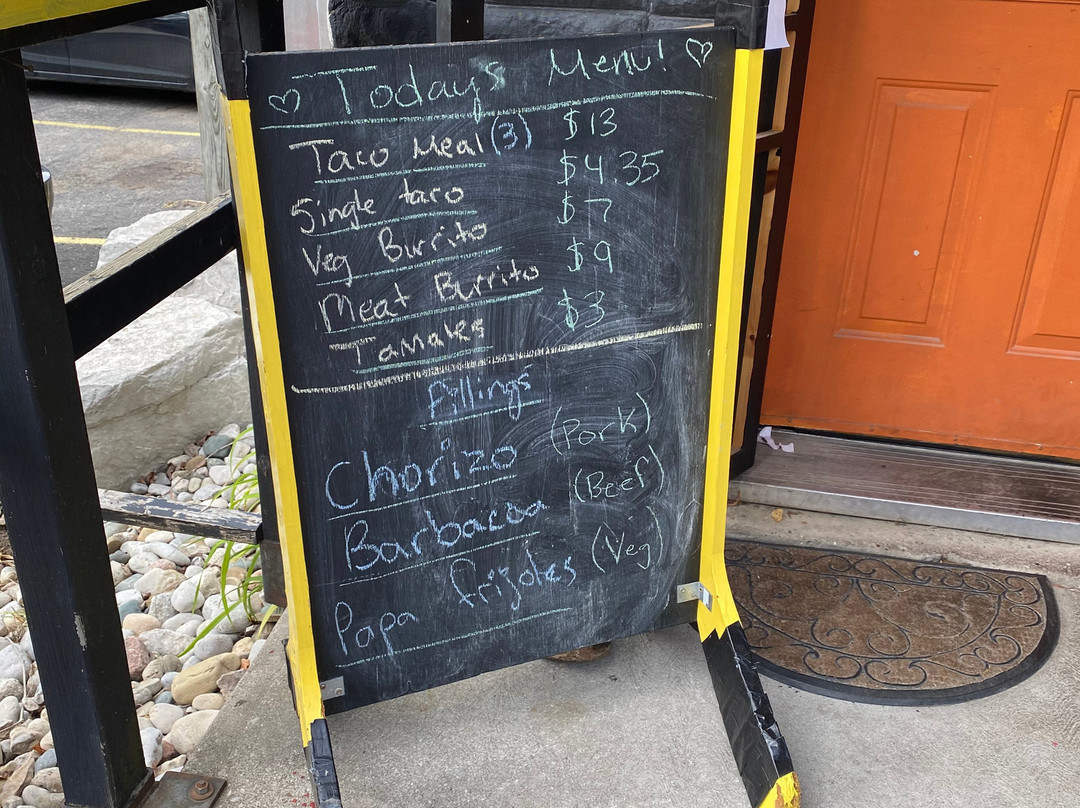 ♡ Today's Menu! ♡
Taco Meal (3) $13
Single taco $4.35
Veg Burrito $7
Meat Burrito $9
Tamales $3
Fillings
Chorizo (Pork)
Barbacoa (Beef)
Papa frijoles (Veg)